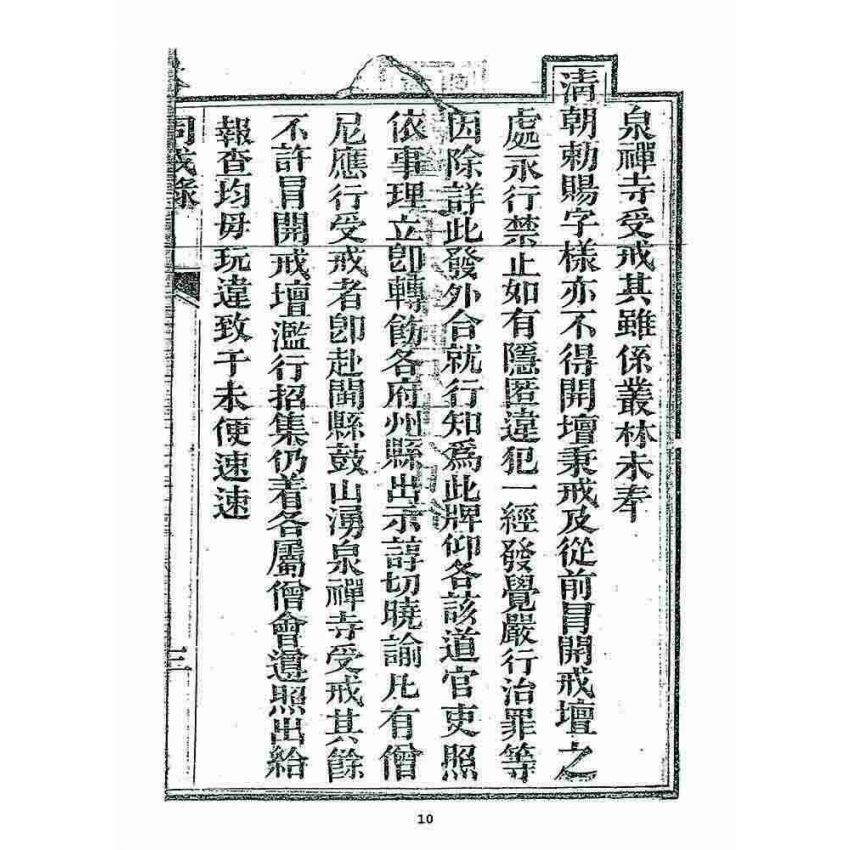 泉禪寺受戒其雖係叢林未奉
清朝勅賜字樣亦不得開壇秉戒及從前冒開戒壇之
處永行禁止如有隱匿違犯一經發覺嚴行治罪等
因除詳此發外合就行知爲此牌仰各該道官吏照
依事理立卽轉飭各府州縣出示諄切曉諭凡有僧
尼應行受戒者卽赴閩縣鼓山湧泉禪寺受戒其餘
不許冒開戒壇濫行招集仍着各屬僧會遵照出給
報查均毋玩違致干未便速速
同戒錄
三
10